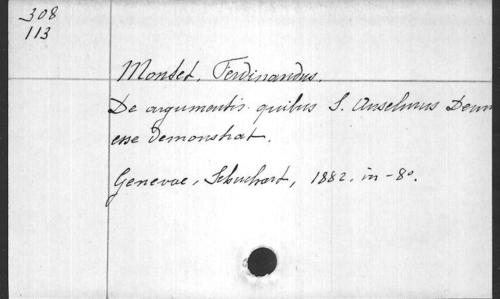 308
113
Montet. Ferdinandus.
De argumentis quibus S. Anselmus Deum
esse demonstrat.
Genevae, Schuchart, 1882. in-8º.